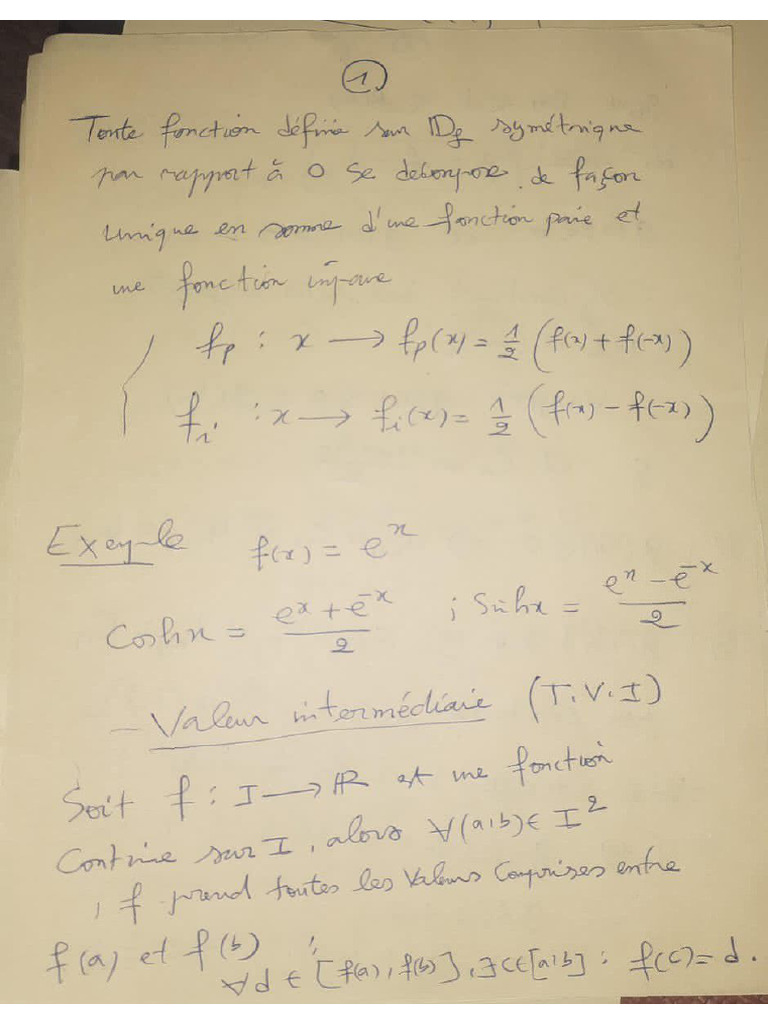 1
Toute fonction définie sur IDf symétrique
par rapport à 0 se decompose de façon
unique en somme d'une fonction paire et
une fonction impaire
fp : x → fp(x) = 1/2 (f(x) + f(-x))
fi : x → fi(x) = 1/2 (f(x) - f(-x))
Exemple f(x) = e^x
Coshx = (e^x + e^-x)/2 ; Sinhx = (e^x - e^-x)/2
- Valeur intermédiaire (T.V.I)
Soit f : I → IR est une fonction
Continue sur I, alors ∀(a,b) ∈ I^2
, f prend toutes les Valeurs Comprises entre
f(a) et f(b) ;
∀d ∈ [f(a), f(b)], ∃c∈[a,b] : f(c) = d.